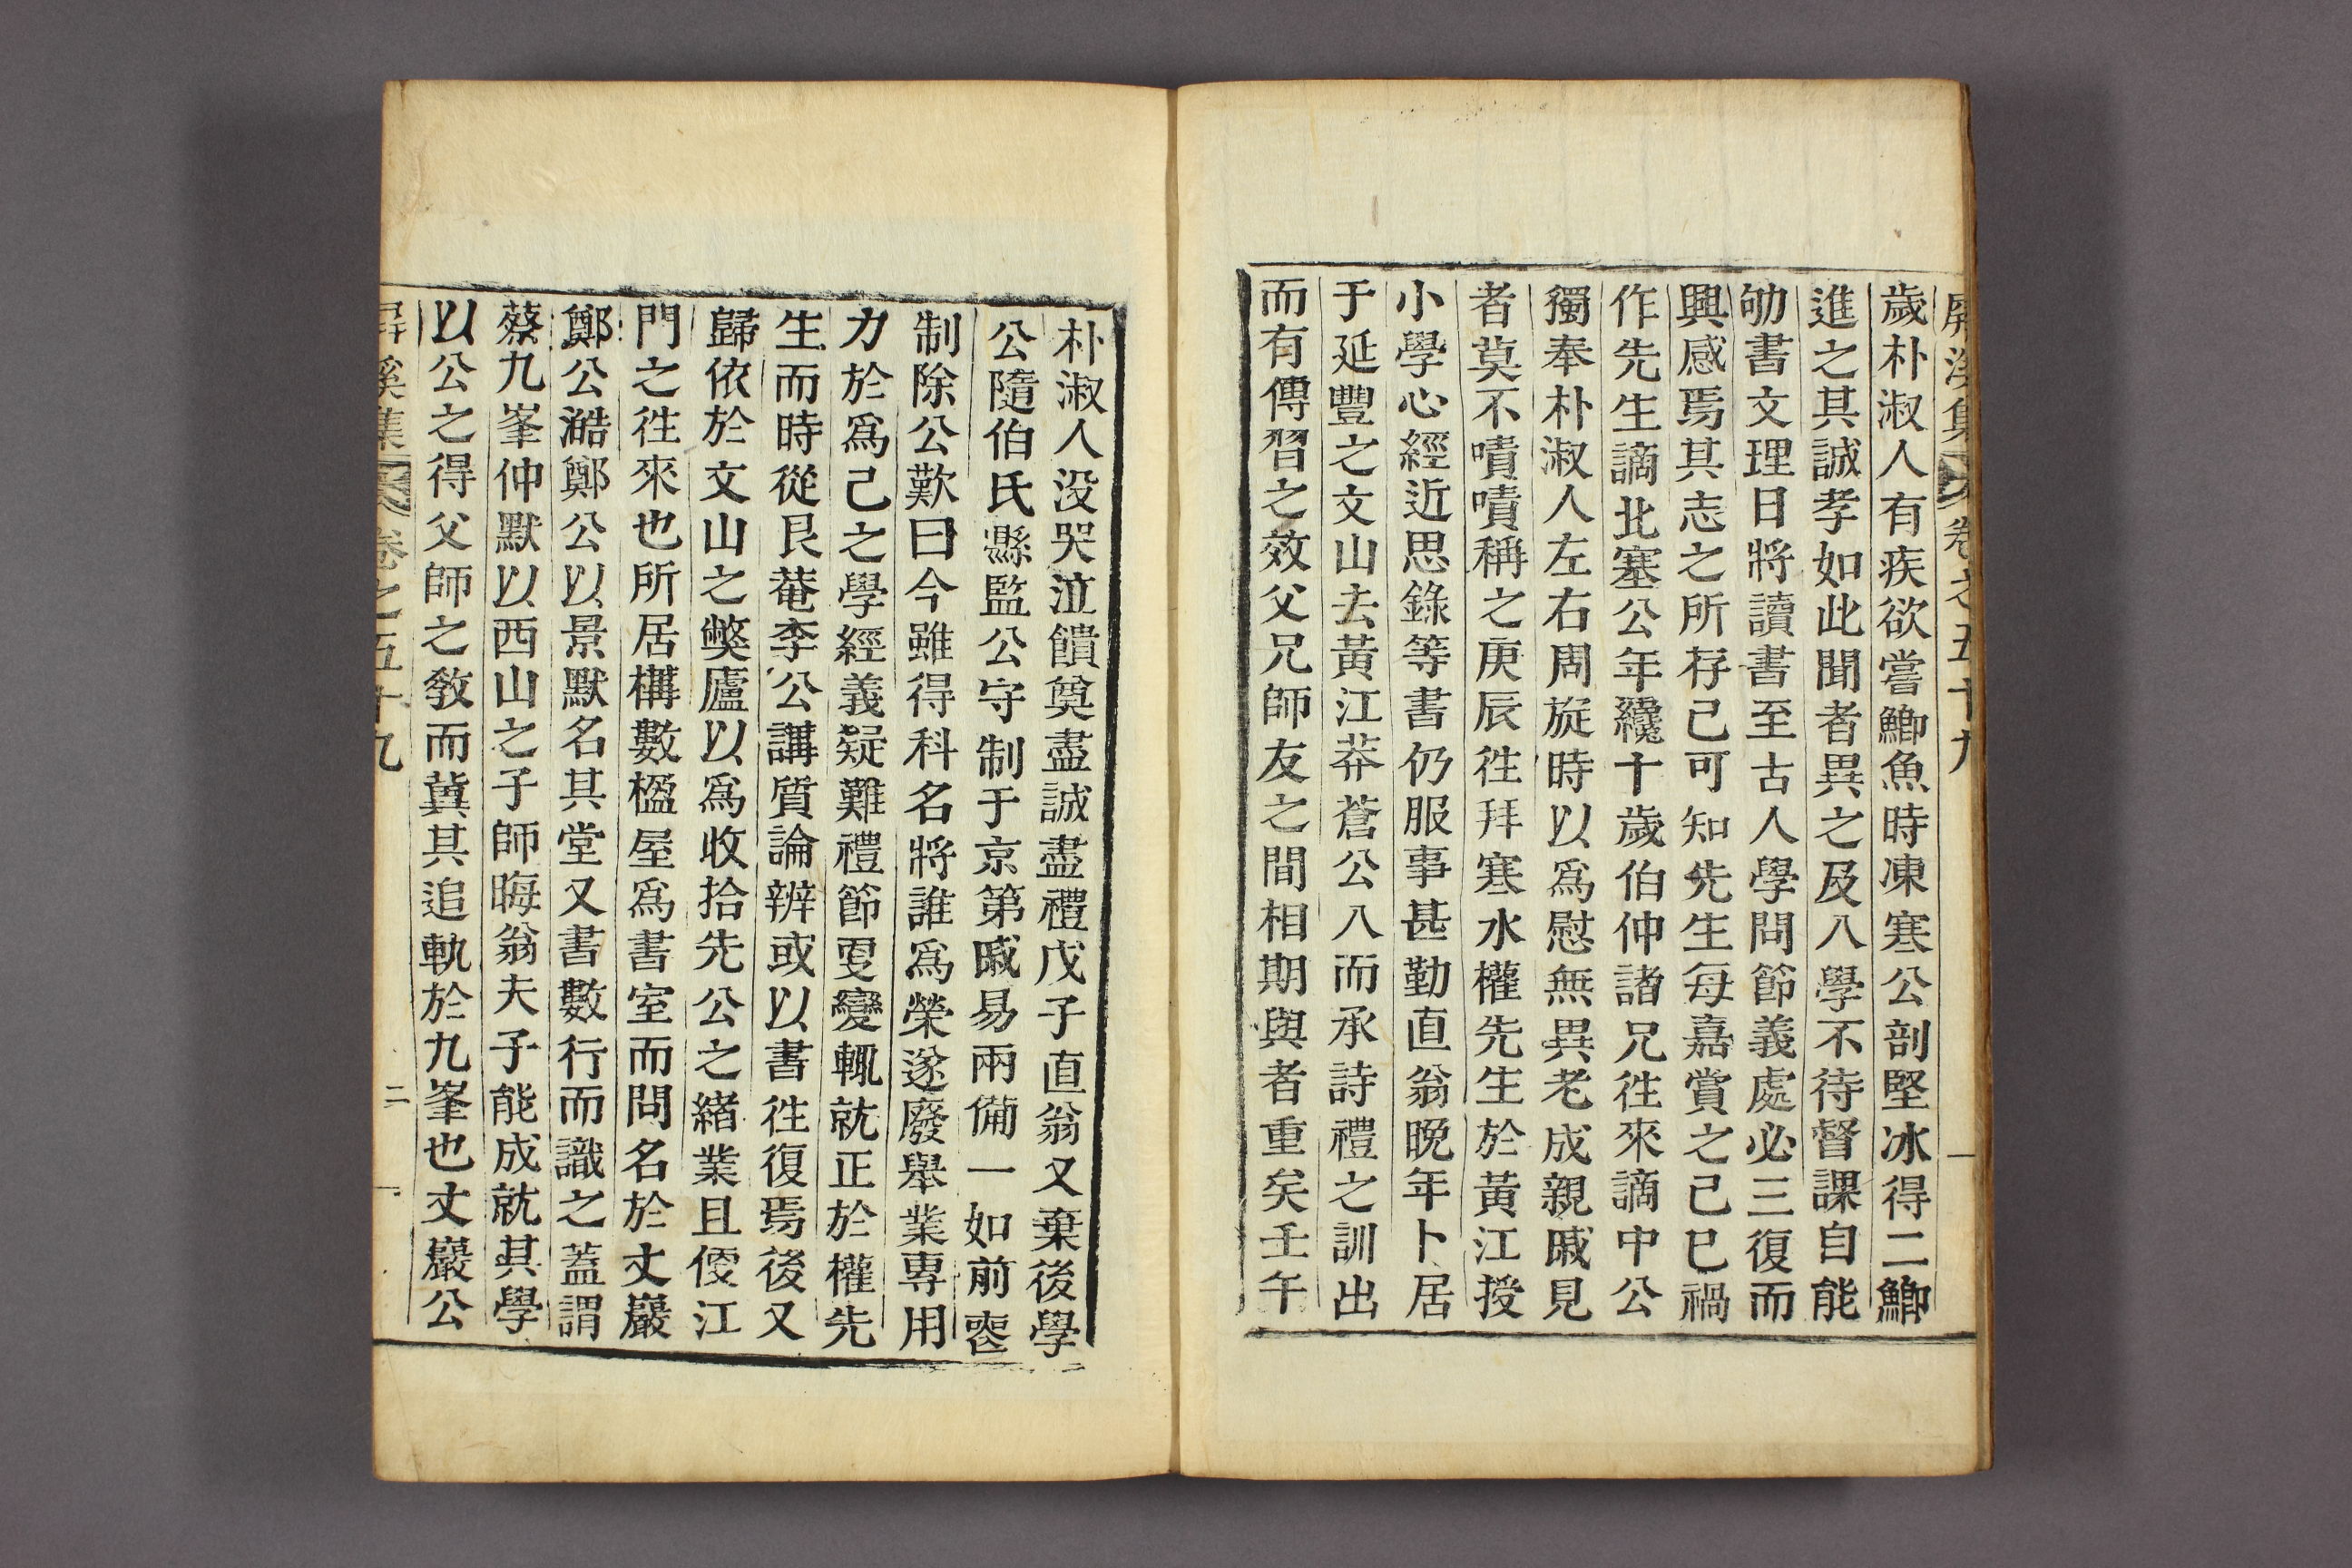 屛溪集 卷之五十九 一
歲朴淑人有疾欲嘗鯽魚時凍寒公剖堅冰得二鯽
進之其誠孝如此聞者異之及八學不待督課自能
劬書文理日將讀書至古人學問節義處必三復而
興感焉其志之所存已可知先生每嘉賞之己巳禍
作先生謫北塞公年纔十歲伯仲諸兄徃來謫中公
獨奉朴淑人左右周旋時以爲慰無異老成親戚見
者莫不嘖嘖稱之庚辰徃拜寒水權先生於黃江授
小學心經近思錄等書仍服事甚勤直翁晩年卜居
于延豐之文山去黃江莽蒼公八而承詩禮之訓出
而有傳習之效父兄師友之間相期與者重矣壬午
朴淑人没哭泣饋奠盡誠盡禮戊子直翁又棄後學
公隨伯氏縣監公守制于京第戚易兩備一如前喪
制除公歎曰今雖得科名將誰爲榮遂廢舉業專用
力於爲己之學經義疑難禮節更變輒就正於權先
生而時從艮菴李公講質論辨或以書徃復焉後又
歸依於文山之弊廬以爲收拾先公之緖業且便江
門之徃來也所居構數楹屋爲書室而問名於丈巖
鄭公澔鄭公以景默名其堂又書數行而識之蓋謂
蔡九峯仲默以西山之子師晦翁夫子能成就其學
以公之得父師之敎而冀其追軌於九峯也丈巖公
屛溪集 卷之五十九 二